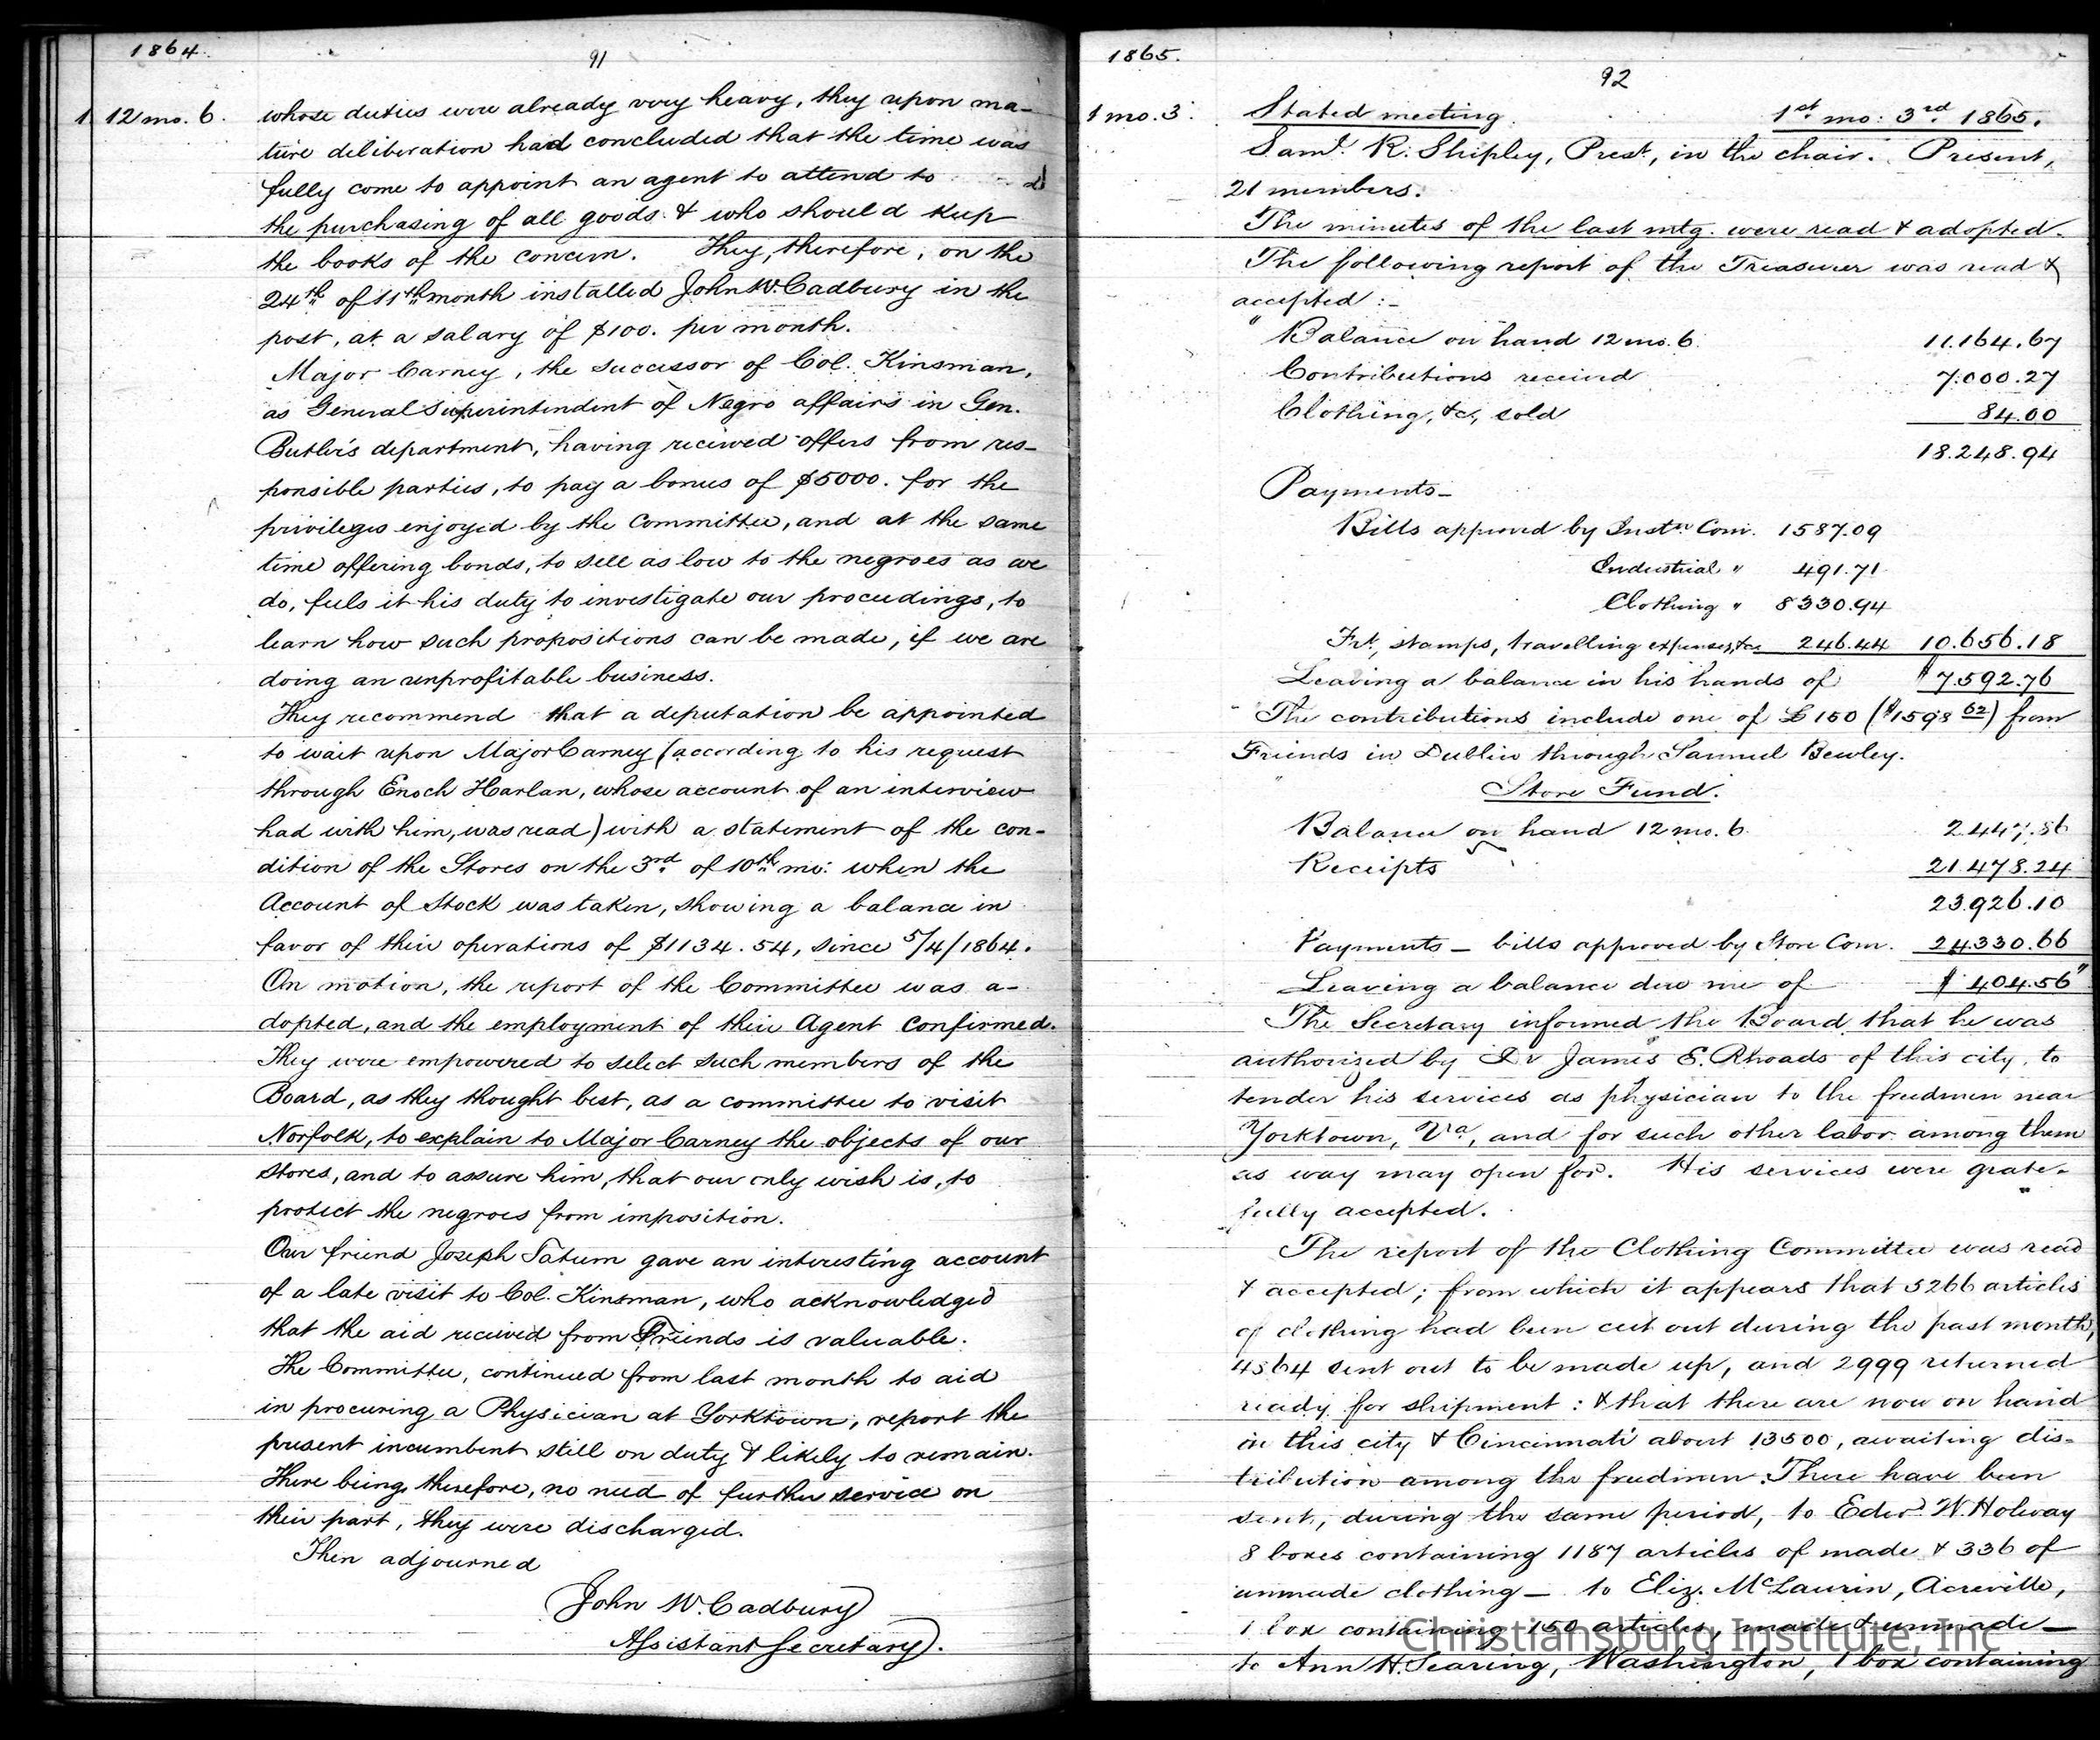 1864.
91
1 12 mo. 6.
whose duties were already very heavy, they upon ma-
ture deliberation had concluded that the time was
fully come to appoint an agent to attend to
the purchasing of all goods & who should keep
the books of the concern. They, therefore, on the
24th of 11th month installed John W. Cadbury in the
post, at a salary of $100. per month.
Major Carney, the successor of Col. Kinsman,
as General Superintendent of Negro affairs in Gen.
Butler's department, having received offers from res-
ponsible parties, to pay a bonus of $5000. for the
privileges enjoyed by the Committee, and at the same
time offering bonds, to sell as low to the negroes as we
do, feels it his duty to investigate our proceedings, to
learn how such propositions can be made, if we are
doing an unprofitable business.
They recommend that a deputation be appointed
to wait upon Major Carney (according to his request
through Enoch Harlan, whose account of an interview
had with him, was read) with a statement of the con-
dition of the Stores on the 3rd of 10th mo: when the
Account of Stock was taken, showing a balance in
favor of their operations of $1134.54, since 5/4/1864.
On motion, the report of the Committee was a-
dopted, and the employment of their Agent confirmed.
They were empowered to select such members of the
Board, as they thought best, as a committee to visit
Norfolk, to explain to Major Carney the objects of our
stores, and to assure him, that our only wish is, to
protect the negroes from imposition.
Our friend Joseph Tatum gave an interesting account
of a late visit to Col. Kinsman, who acknowledged
that the aid received from Friends is valuable.
The Committee, continued from last month to aid
in procuring a Physician at Yorktown, report the
present incumbent still on duty & likely to remain.
There being, therefore, no need of further service on
their part, they were discharged.
Then adjourned
John W. Cadbury
Assistant Secretary.
1865.
92
1 mo. 3.
Stated meeting. 1st mo: 3rd 1865.
Saml. R. Shipley, Prest, in the chair. Present,
21 members.
The minutes of the last mtg. were read & adopted.
The following report of the Treasurer was read &
accepted :-
"Balance on hand 12 mo. 6. 11.164.67
Contributions received 7.000.27
Clothing, &c, sold 84.00
18.248.94
Payments-
Bills approved by Instn Com. 1587.09
Industrial " 491.71
Clothing " 8330.94
Frt, stamps, travelling expenses, &c 246.44 10.656.18
Leaving a balance in his hands of $7.592.76
"The contributions include one of £150 ($1598 62) from
Friends in Dublin through Samuel Bewley.
" Store Fund.
Balance on hand 12 mo. 6 2.447.86
Receipts 21.478.24
23.926.10
Payments - bills approved by Store Com. 24.330.66
Leaving a balance due me of $404.56"
The Secretary informed the Board that he was
authorized by Dr James E. Rhoads of this city, to
tender his services as physician to the freedmen near
Yorktown, Va, and for such other labor among them
as way may open for. His services were grate-
fully accepted.
The report of the Clothing Committee was read
& accepted; from which it appears that 5266 articles
of clothing had been cut out during the past month,
4564 sent out to be made up, and 2999 returned
ready for shipment : & that there are now on hand
in this city & Cincinnati about 13500, awaiting dis-
tribution among the freedmen. There have been
sent, during the same period, to Edwd W. Holway
8 boxes containing 1187 articles of made & 336 of
unmade clothing - to Eliz. McLaurin, Acreville,
1 box containing 150 articles, made & unmade -
to Ann H. Searing, Washington, 1 box containing
Christiansburg Institute, Inc